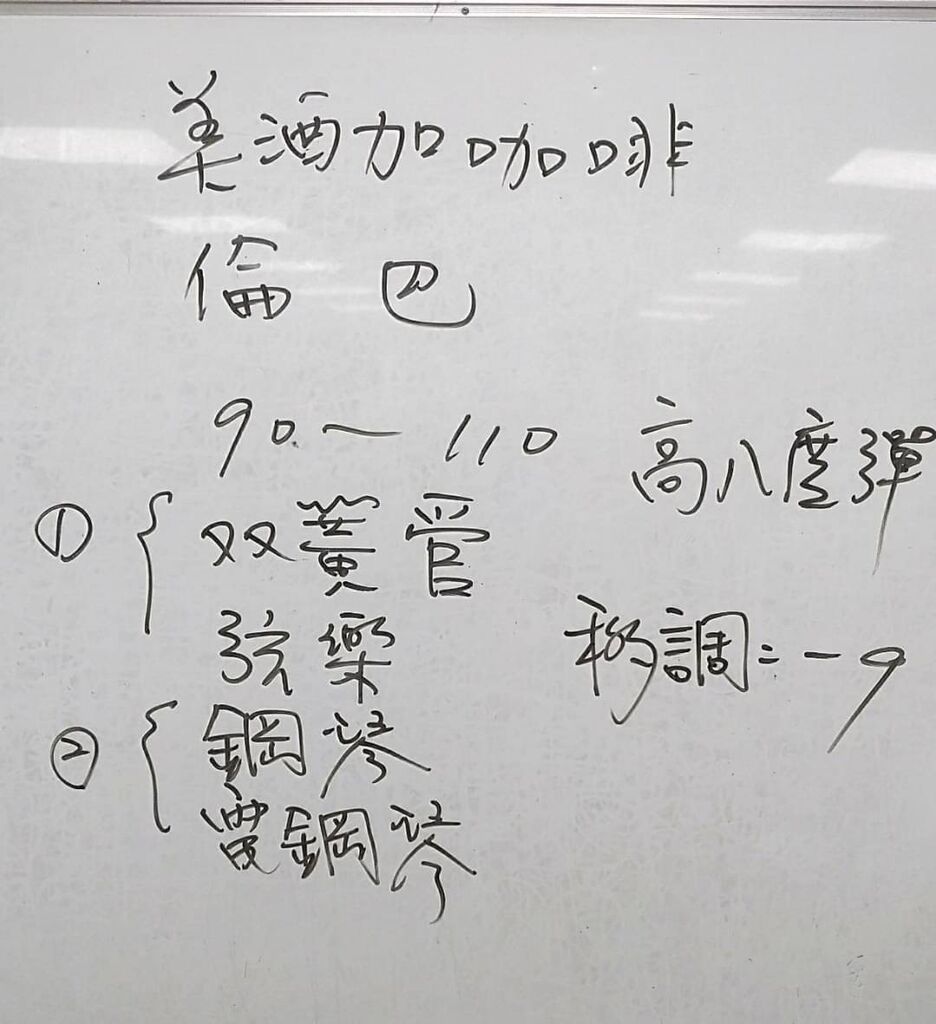 美酒加咖啡
倫巴
90～110
高八度彈
① 双簧管
弦樂
移調:-9
② 鋼琴
電鋼琴